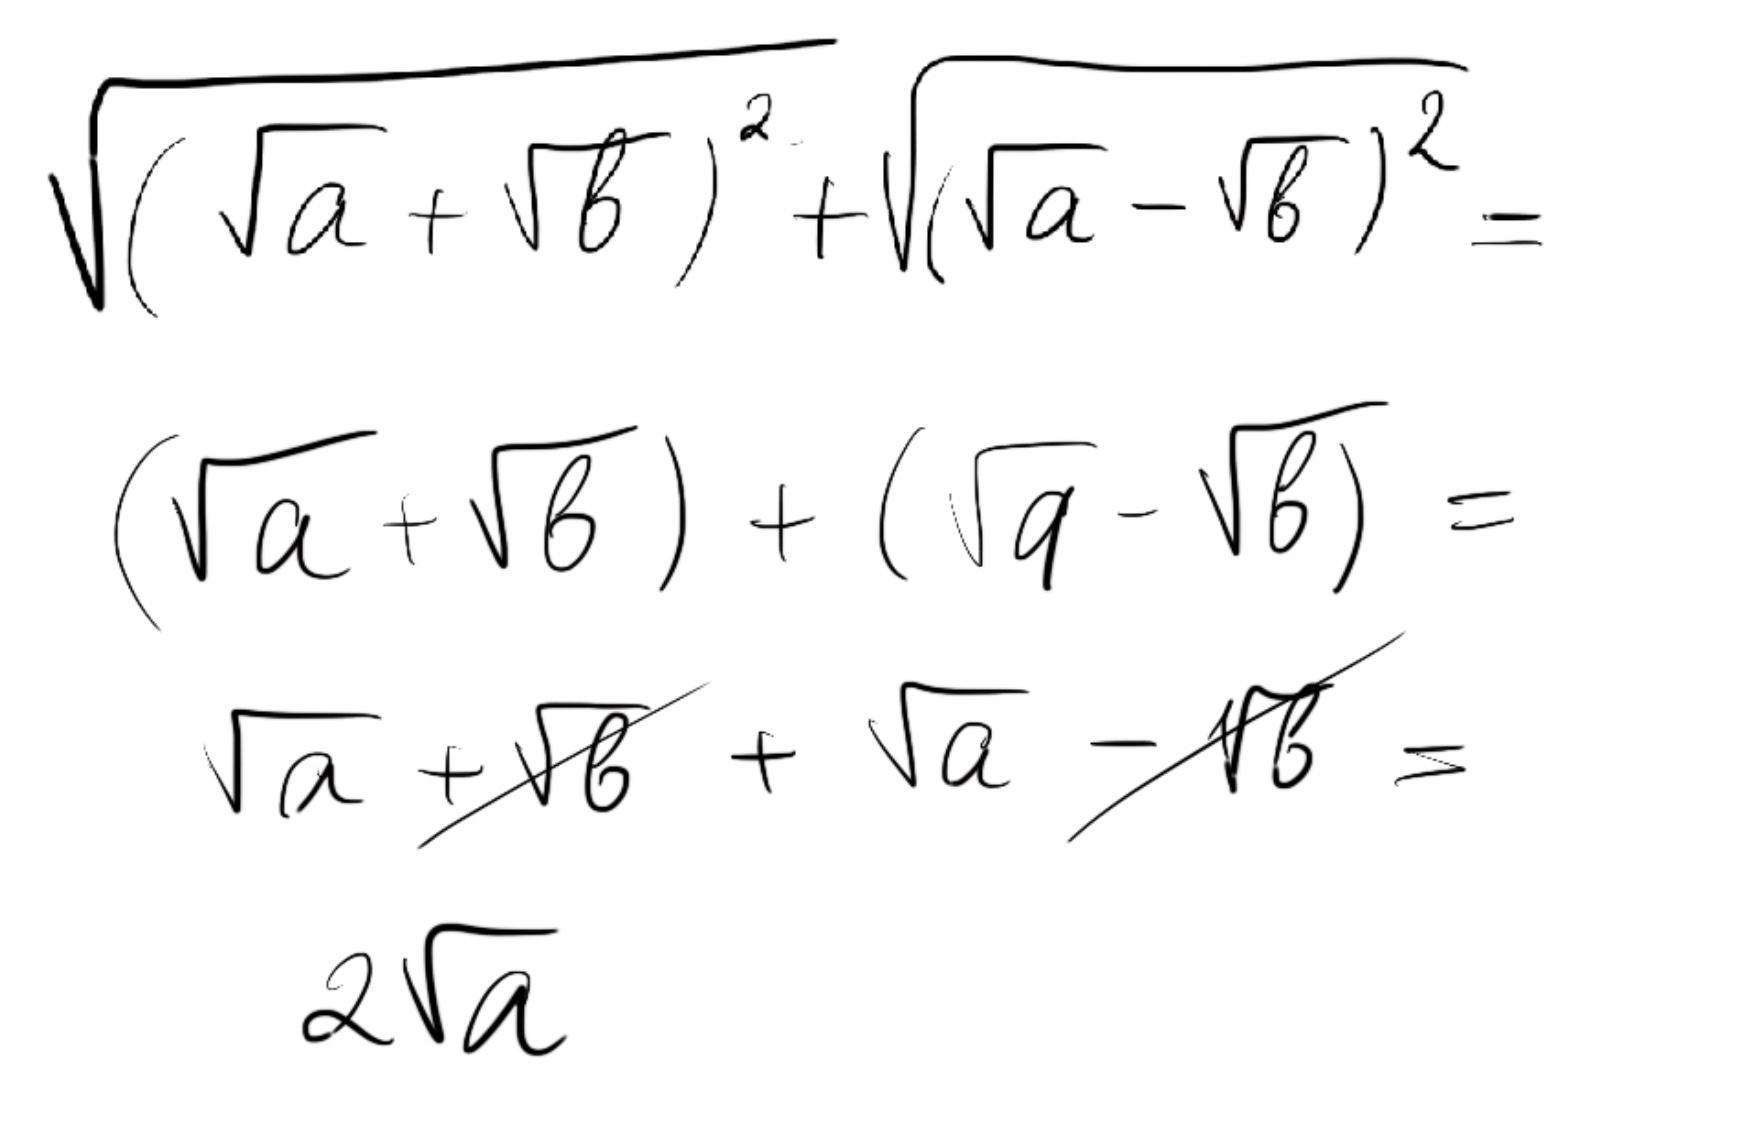 √((√a + √b)² + √((√a − √b)²) =
(√a + √b) + (√a − √b) =
√a + √b + √a − √b =
2√a